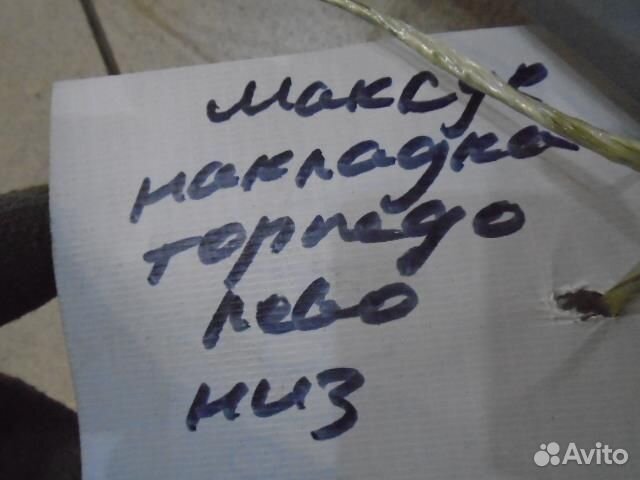 максус
накладка
торпедо
лево
низ
Avito